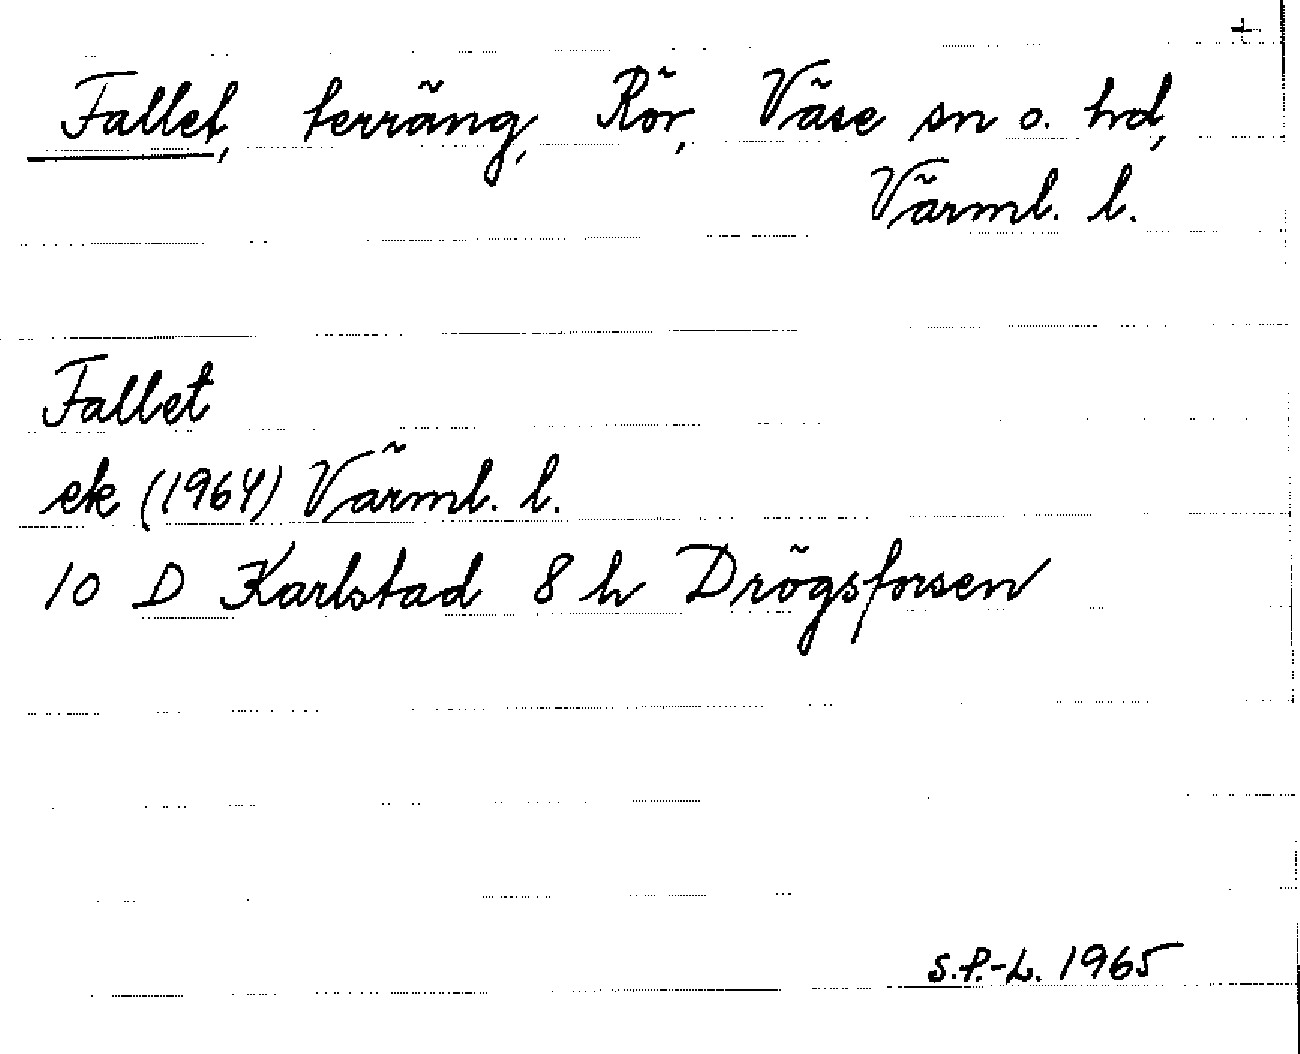 +
Fallet, terräng, Rör, Väse sn o. hd,
Värml. l.
Fallet
ek (1964) Värml. l.
10 D Karlstad 8 h Drögsforsen
S.P.-L. 1965